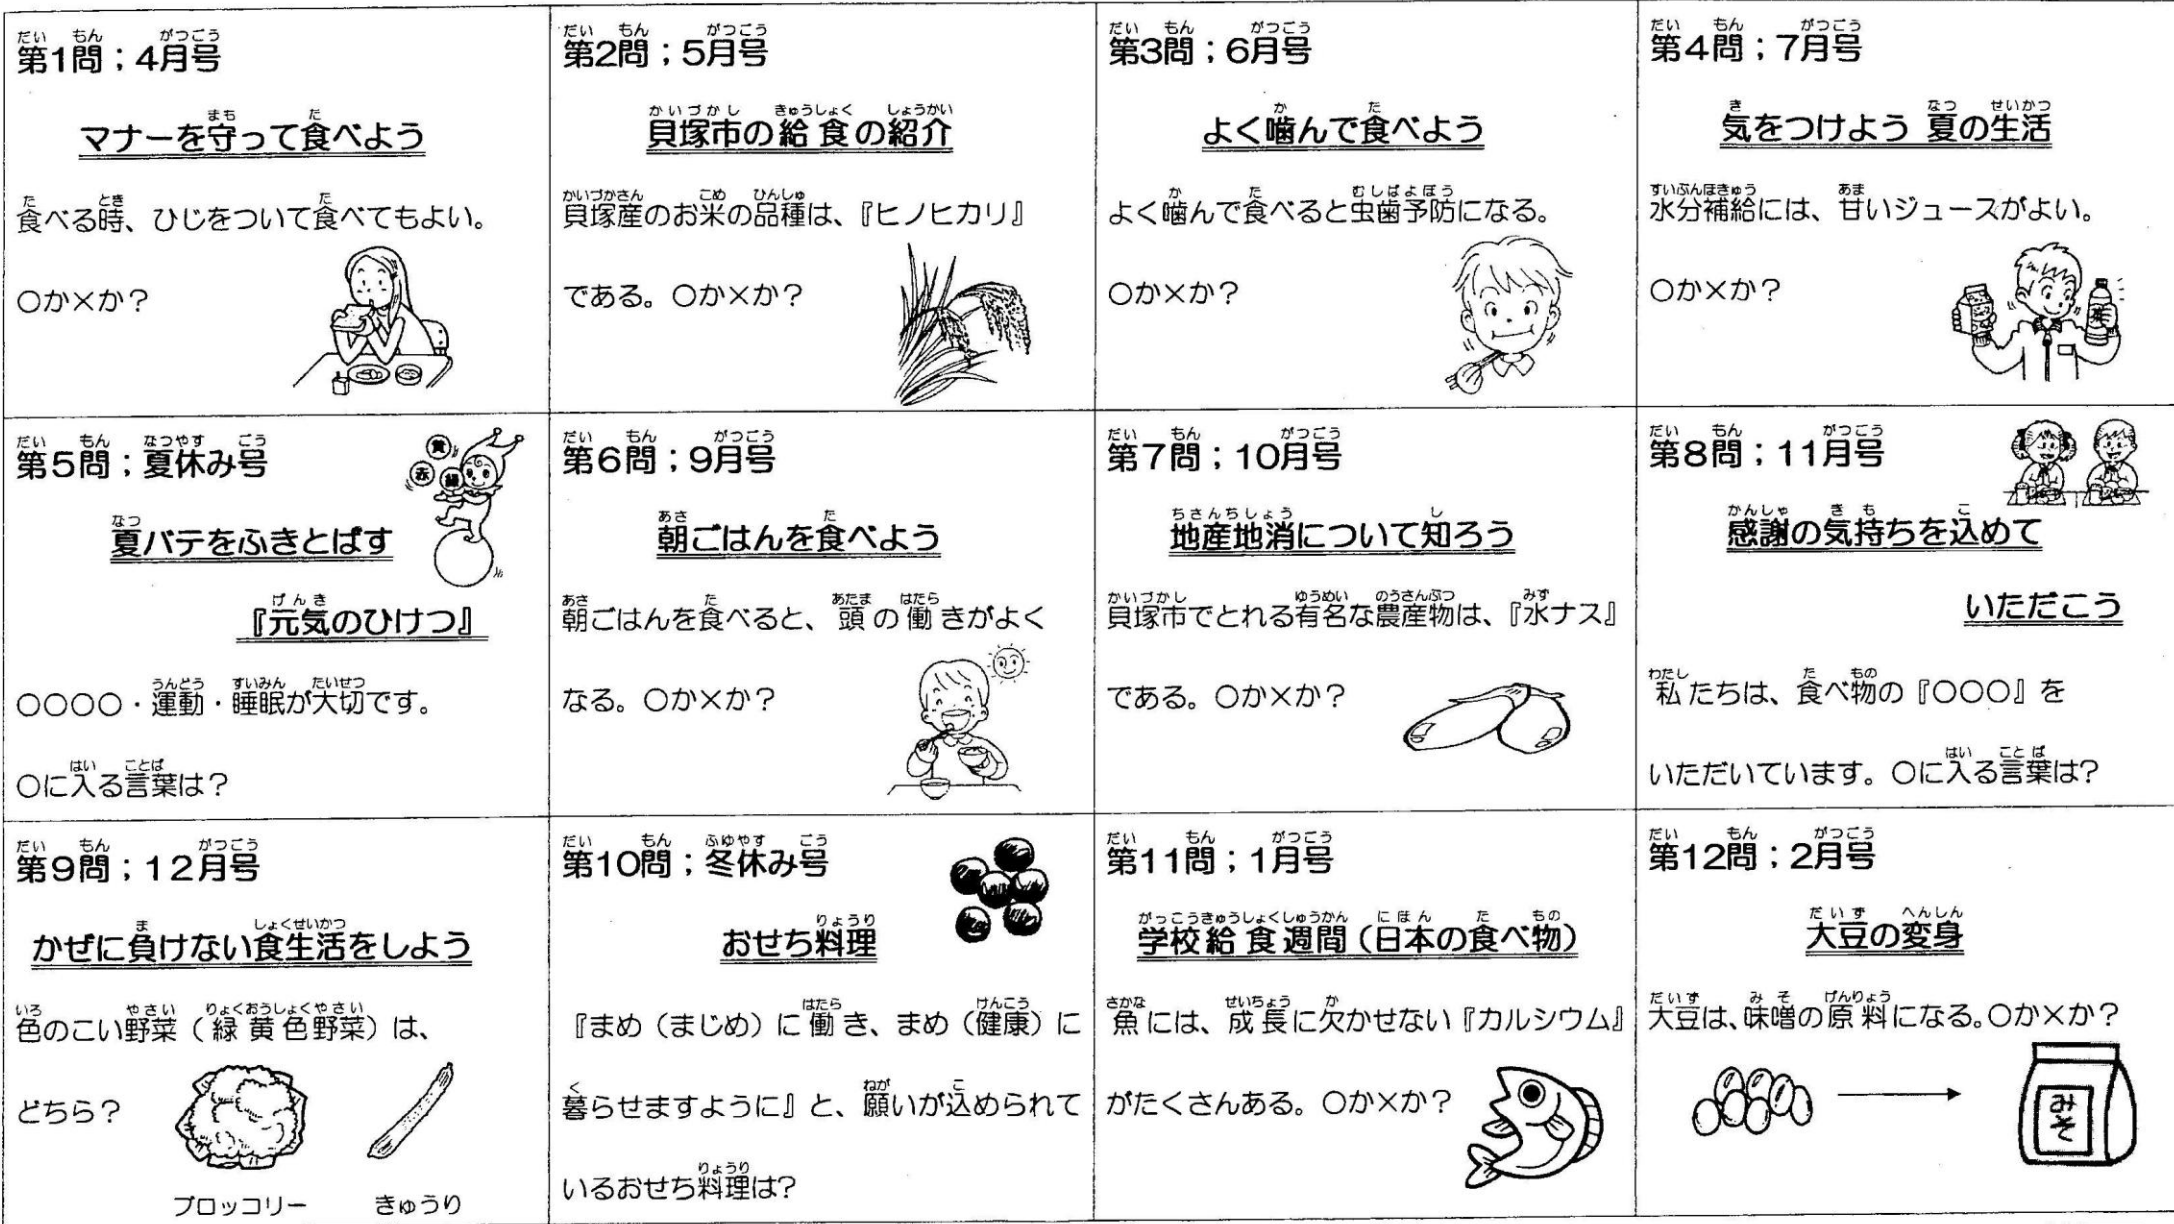 第1問；4月号
マナーを守って食べよう
食べる時、ひじをついて食べてもよい。
〇か×か？
第2問；5月号
貝塚市の給食の紹介
貝塚産のお米の品種は、『ヒノヒカリ』
である。〇か×か？
第3問；6月号
よく噛んで食べよう
よく噛んで食べると虫歯予防になる。
〇か×か？
第4問；7月号
気をつけよう 夏の生活
水分補給には、甘いジュースがよい。
〇か×か？
茶
第5問；夏休み号
黄
赤
緑
夏バテをふきとばす
『元気のひけつ』
〇〇〇〇・運動・睡眠が大切です。
〇に入る言葉は？
第6問；9月号
朝ごはんを食べよう
朝ごはんを食べると、頭の働きがよく
なる。〇か×か？
第7問；10月号
地産地消について知ろう
貝塚市でとれる有名な農産物は、『水ナス』
である。〇か×か？
第8問；11月号
感謝の気持ちを込めて
いただこう
私たちは、食べ物の『〇〇〇』を
いただいています。〇に入る言葉は？
第9問；12月号
かぜに負けない食生活をしよう
色のこい野菜（緑黄色野菜）は、
どちら？
ブロッコリー　きゅうり
第10問；冬休み号
おせち料理
『まめ（まじめ）に働き、まめ（健康）に
暮らせますように』と、願いが込められて
いるおせち料理は？
第11問；1月号
学校給食週間（日本の食べ物）
魚には、成長に欠かせない『カルシウム』
がたくさんある。〇か×か？
第12問；2月号
大豆の変身
大豆は、味噌の原料になる。〇か×か？
みそ